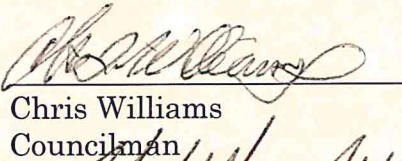 Chris Williams
Chris Williams
Councilman